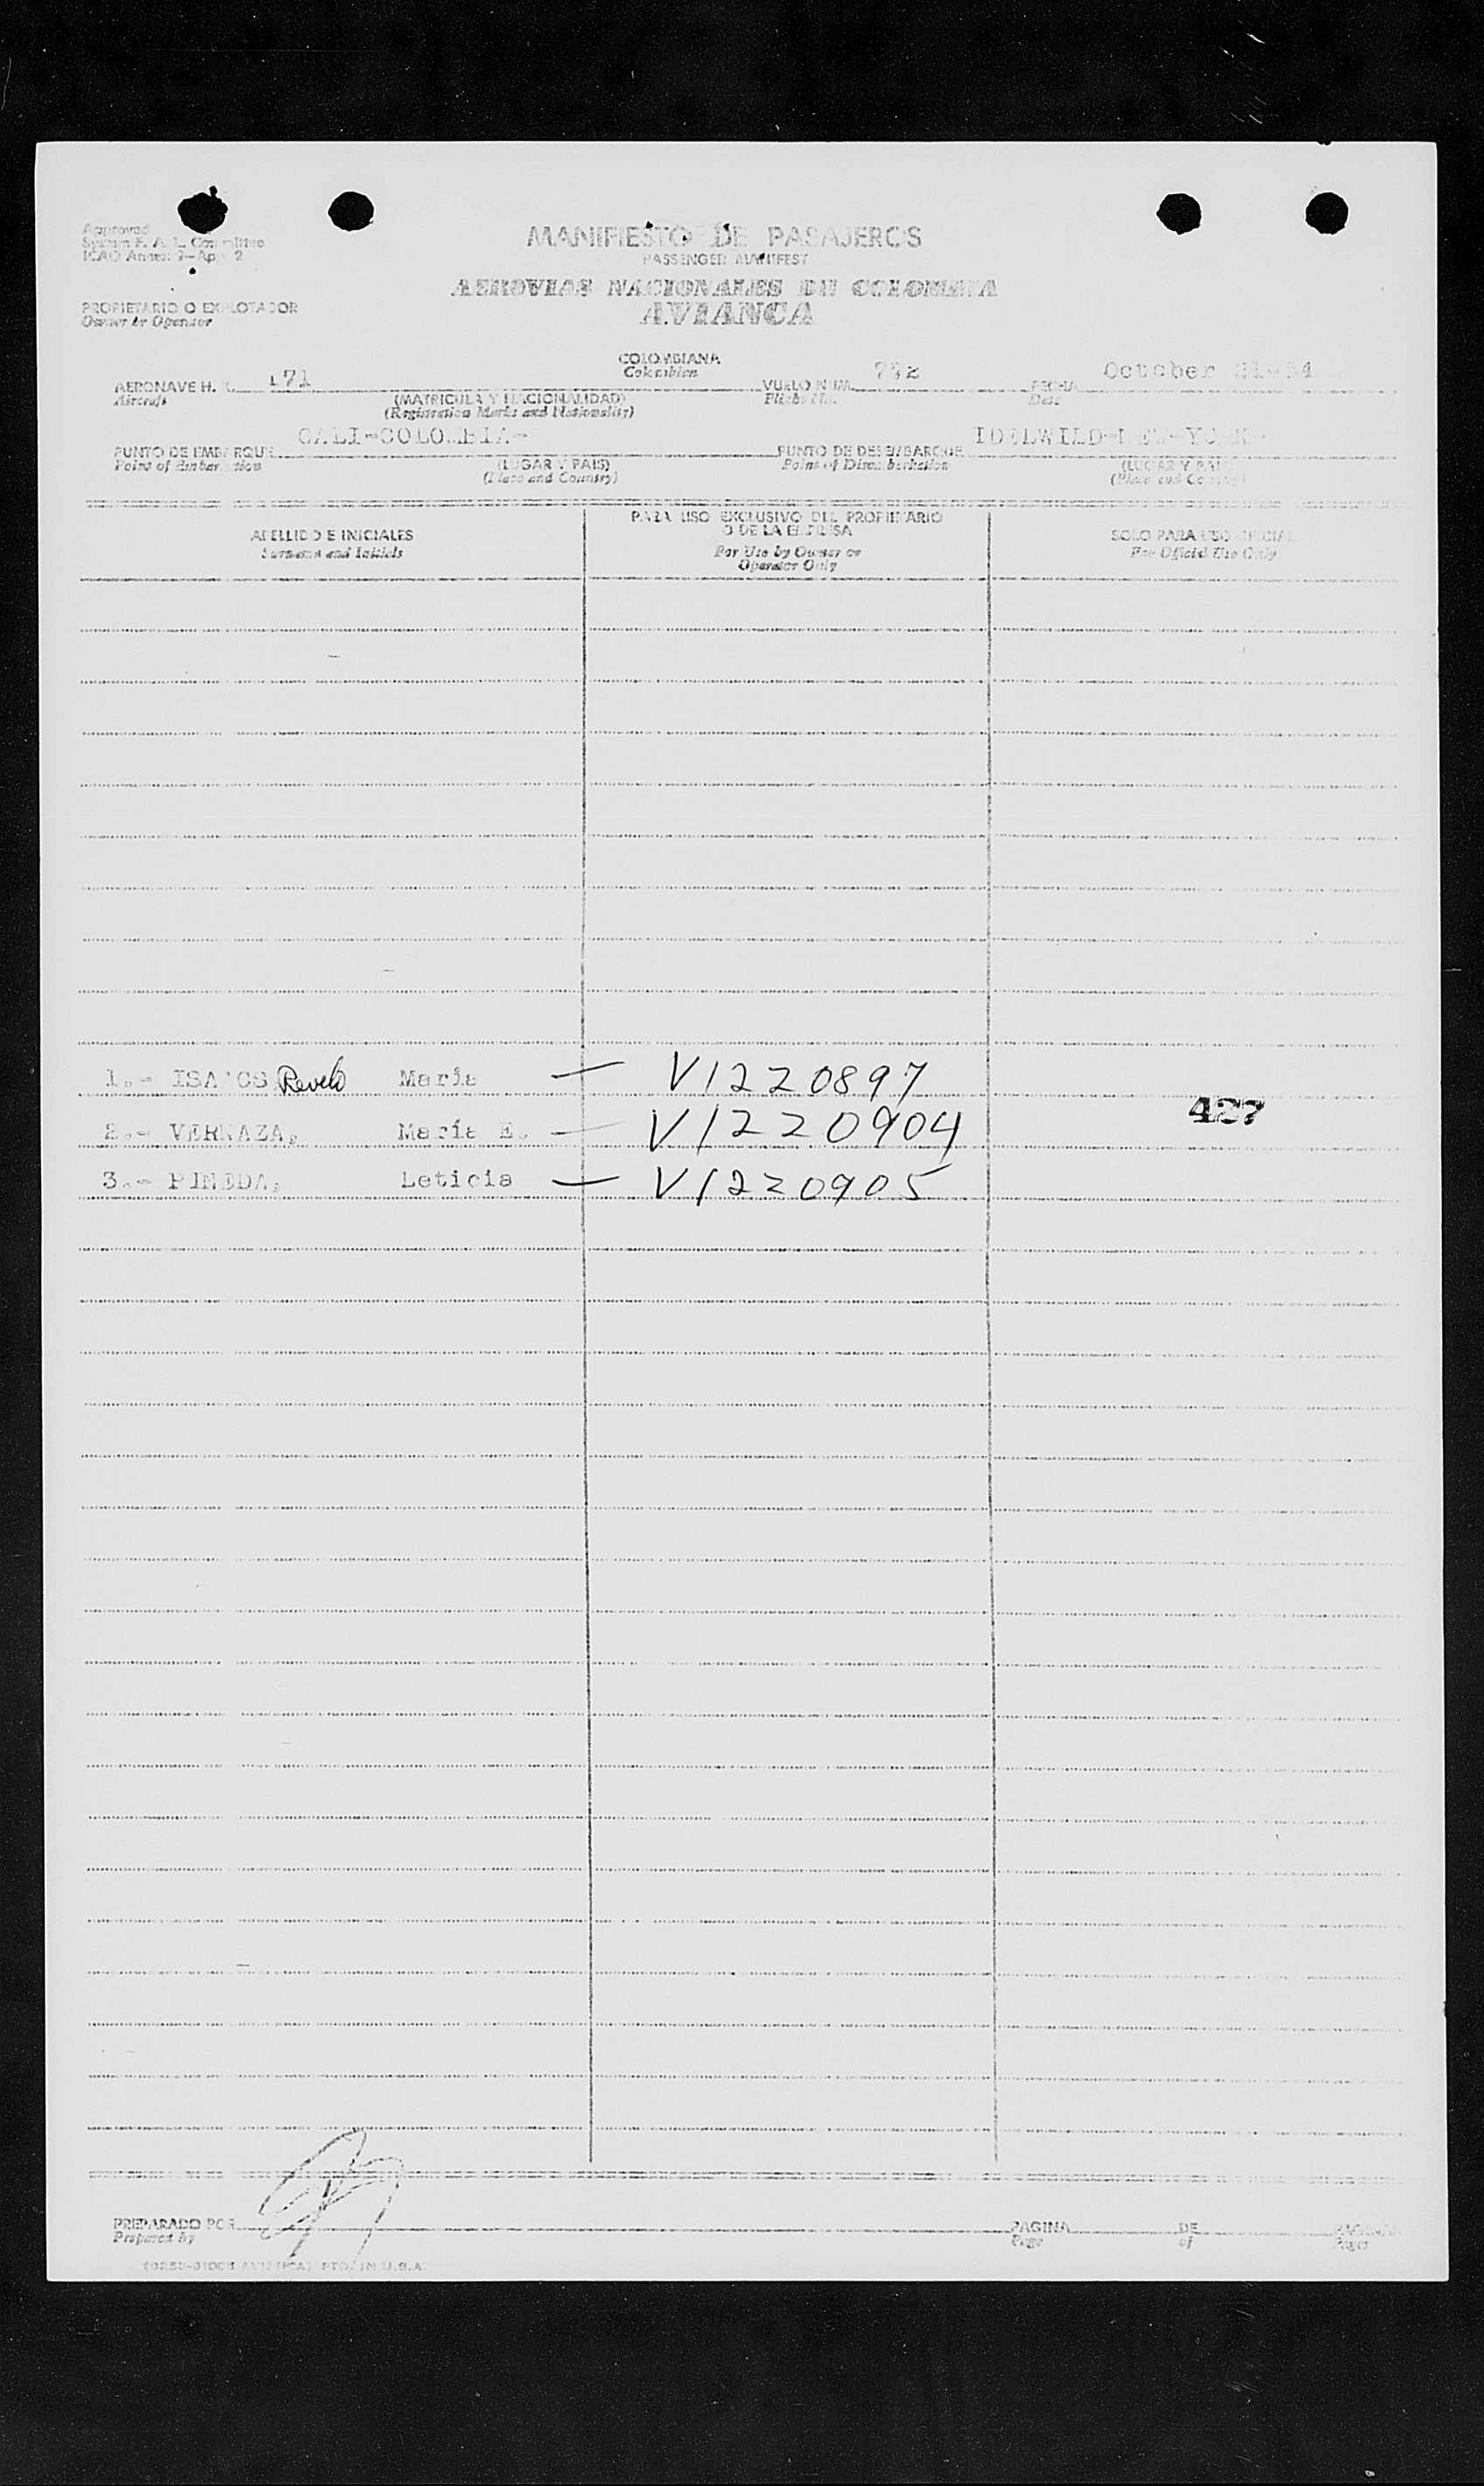 Approved
System F. A. L. Committee
ICAO Annex 9-App. 2
MANIFIESTO DE PASAJEROS
PASSENGER MANIFEST
AEROVIAS NACIONALES DE COLOMBIA
AVIANCA
PROPIETARIO O EXPLOTADOR
Owner or Operator
COLOMBIANA
Colombian
AERONAVE H. K. 171 VUELO NUM. FECHA October 54
Aircraft (MATRICULA Y NACIONALIDAD) Flight No. Date
(Registration Marks and Nationality)
PUNTO DE EMBARQUE CALI-COLOMBIA- PUNTO DE DESEMBARQUE IDELWILD-NEW-YORK-
Point of Embarkation (LUGAR Y PAIS) Point of Disembarkation (LUGAR Y PAIS)
(Place and Country) (Place and Country)
APELLIDO E INICIALES PARA USO EXCLUSIVO DEL PROPIETARIO O DE LA EMPRESA SOLO PARA USO OFICIAL
Surname and Initials For Use by Owner or Operator Only For Official Use Only
1.- Revelo María — V1220897
427
2.- VERNAZA, María E. — V1220904
3.- PINEDA, Leticia — V1220905
PREPARADO POR PAGINA DE PAGINAS
Prepared by Page of Pages
PTD. IN U.S.A.